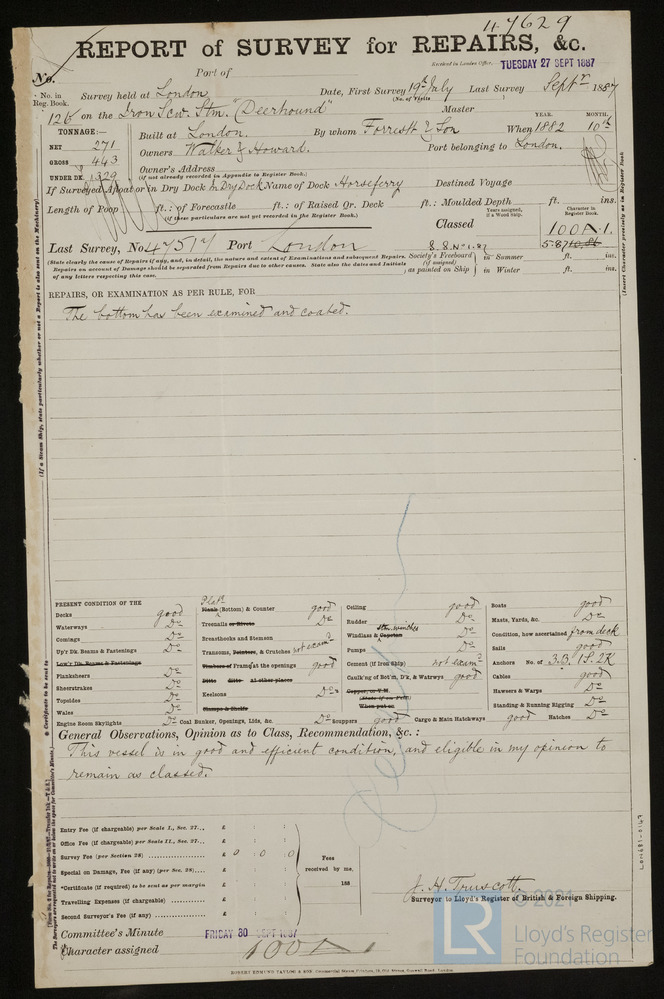 47629
REPORT of SURVEY for REPAIRS, &c.
No. Port of Received in London Office, TUESDAY 27 SEPT 1887
No. in Reg. Book. Survey held at London Date, First Survey 19th July Last Survey Septr 1887
(No. of Visits )
126 on the Iron Scw. Stm. "Deerhound" Master
TONNAGE:— Built at London. By whom Forrestt & Son When 1882 MONTH. 10th
YEAR.
NET 271 Owners Walker & Howard. Port belonging to London.
GROSS 443
Owner's Address
(if not already recorded in Appendix to Register Book.)
UNDER DK. 329
If Surveyed Afloat or in Dry Dock In Dry Dock Name of Dock Horseferry Destined Voyage
Length of Poop ft.: of Forecastle ft.: of Raised Qr. Deck ft.: Moulded Depth ft. ins.
(if these particulars are not yet recorded in the Register Book.)
Years assigned, if a Wood Ship. Character in Register Book.
Classed 100A.1.
Last Survey, No. 47517 Port London S.S. No 1. 5.87 10.86
(State clearly the cause of Repairs if any, and, in detail, the nature and extent of Examinations and subsequent Repairs.
Repairs on account of Damage should be separated from Repairs due to other causes. State also the dates and Initials
of any letters respecting this case.
Society's Freeboard (if assigned) as painted on Ship in Summer ft. ins.
in Winter ft. ins.
REPAIRS, OR EXAMINATION AS PER RULE, FOR
The bottom has been examined and coated.
PRESENT CONDITION OF THE
Decks good
Waterways Do
Comings Do
Up'r Dk. Beams & Fastenings Do
Low'r Dk. Beams & Fastenings
Planksheers Do
Sheerstrakes Do
Topsides Do
Wales Do
Engine Room Skylights Do
Plate
Plank (Bottom) & Counter good
Treenails or Rivets Do
Breasthooks and Stemson
Transoms, Pointers, & Crutches not examd
Timbers of Frame at the openings good
Ditto ditto at other places
Keelsons Do
Clamps & Shelfs
Coal Bunker, Openings, Lids, &c. Do
Ceiling good
Rudder Do
Stm. winches
Windlass & Capstan Do
Pumps Do
Cement (if Iron ship) not examd
Caulk'ng of Bot'm, D'k, & Watrways good
Copper, or Y.M.
(State if on Felt)
When put on
Scuppers good
Cargo & Main Hatchways good
Boats good
Masts, Yards, &c. Do
Condition, how ascertained from deck
Sails good
Anchors No. of 3.B. 1S. 2K
Cables good
Hawsers & Warps Do
Standing & Running Rigging Do
Hatches Do
General Observations, Opinion as to Class, Recommendation, &c. :
This vessel is in good and efficient condition, and eligible in my opinion to
remain as classed.
Entry Fee (if chargeable) per Scale I., Sec. 27... £ : :
Office Fee (if chargeable) per Scale II., Sec. 27... £ : :
Survey Fee (per Section 28) £ 0 : 0 : 0
Special on Damage, Fee (if any) (per Sec. 28).... £ : :
*Certificate (if required) to be sent as per margin £
Travelling Expenses (if chargeable) £
Second Surveyor's Fee (if any) £
Fees received by me, 188
J. H. Truscott.
Surveyor to Lloyd's Register of British & Foreign Shipping.
Committee's Minute FRIDAY 30 SEPT 1887
Character assigned 100A
(If a Steam Ship, state particularly whether or not a Report is also sent on the Machinery)
(Insert Character precisely as in Register Book
LON681-0149
© 2021
LR
Lloyd's Register
Foundation